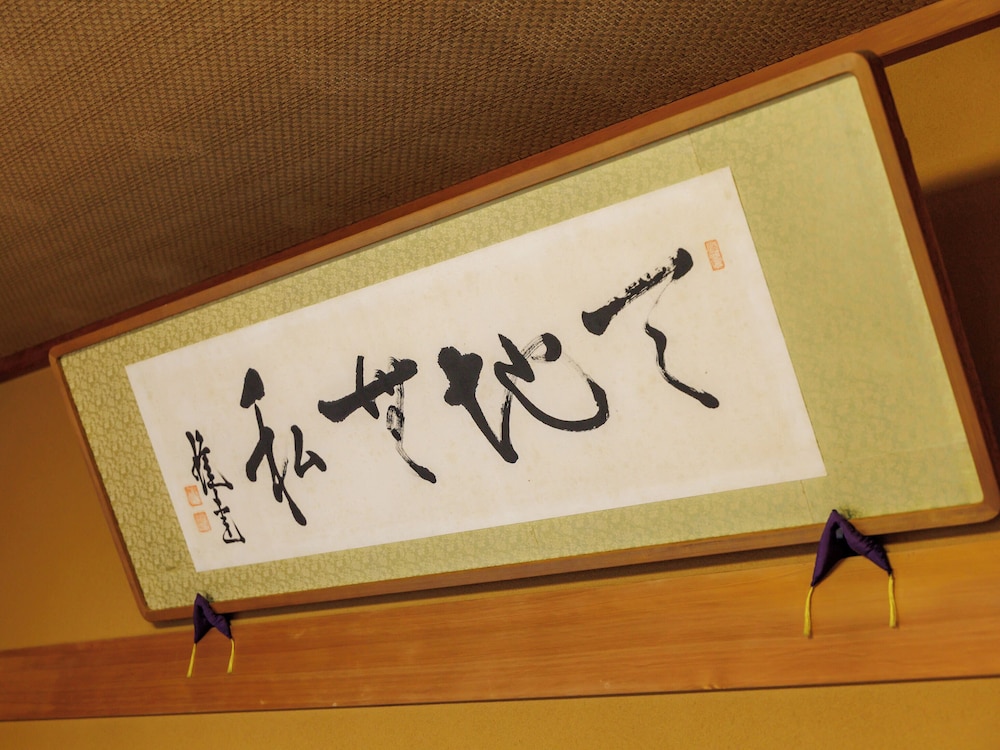 天地無私